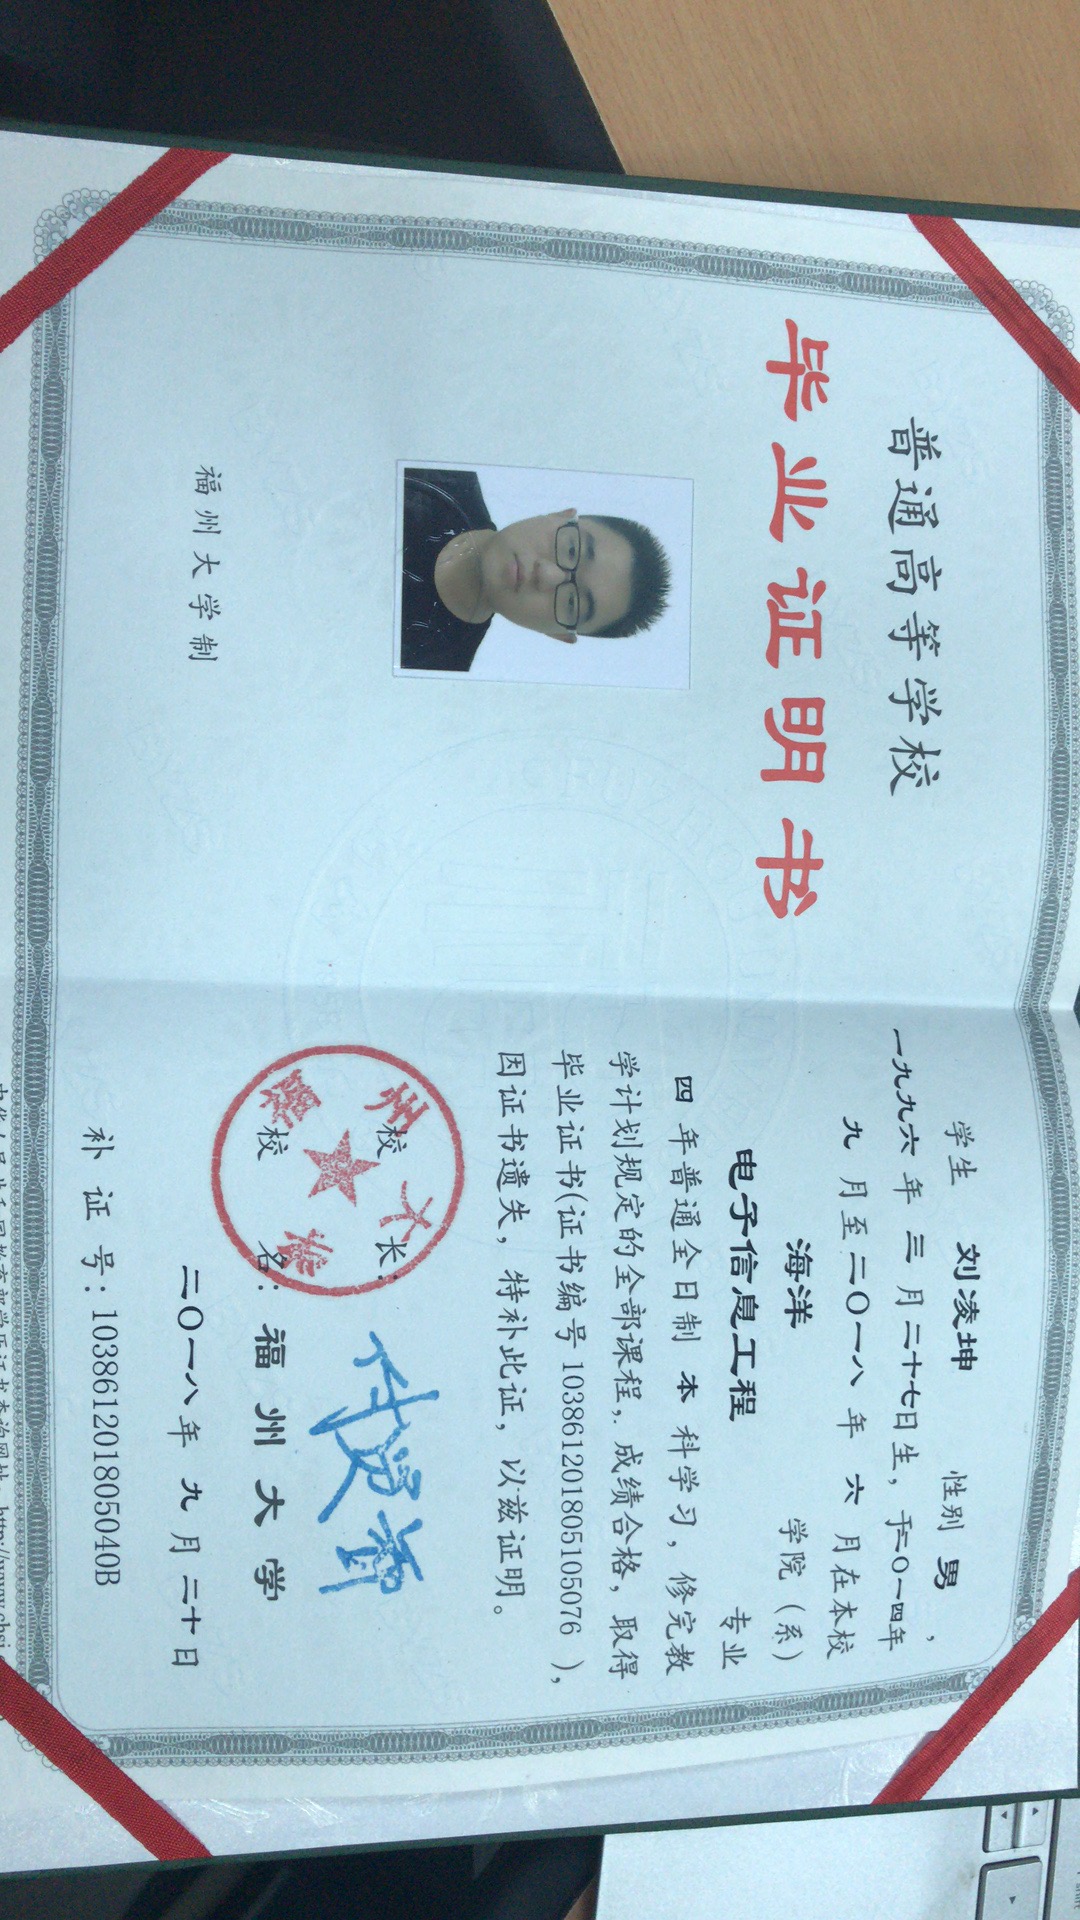 普通高等学校
毕业证明书
福州大学制
学生 刘凌坤 性别 男，
一九九六年 三 月 二十七日生，于二〇一四年
九 月至二〇一八 年 六 月在本校
海洋 学院（系）
电子信息工程 专业
四 年普通全日制 本 科学习，修完教
学计划规定的全部课程，成绩合格，取得
毕业证书(证书编号 103861201805105076 )，
因证书遗失，特补此证，以兹证明。
校 长：
校 名：福 州 大 学
二〇一八年 九 月 二十日
补 证 号：10386120180504​0B
中华人民共和国教育部学历证书查询网址：http://www.chsi